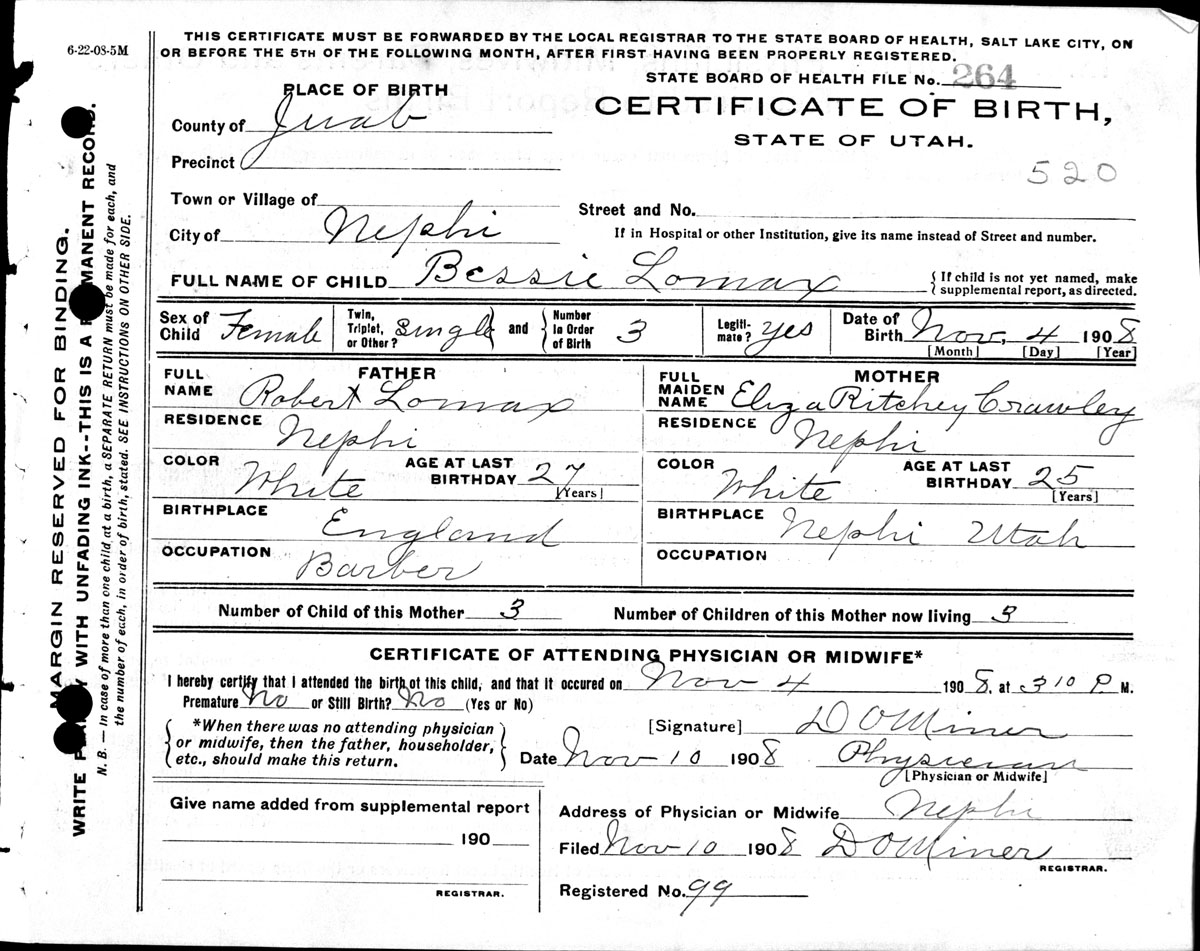 6-22-08-5M
THIS CERTIFICATE MUST BE FORWARDED BY THE LOCAL REGISTRAR TO THE STATE BOARD OF HEALTH, SALT LAKE CITY, ON
OR BEFORE THE 5TH OF THE FOLLOWING MONTH, AFTER FIRST HAVING BEEN PROPERLY REGISTERED.
STATE BOARD OF HEALTH FILE No. 264
PLACE OF BIRTH
CERTIFICATE OF BIRTH,
County of Juab
STATE OF UTAH.
Precinct
520
Town or Village of
Street and No.
City of Nephi
If in Hospital or other Institution, give its name instead of Street and number.
FULL NAME OF CHILD Bessie Lomax
{If child is not yet named, make
supplemental report, as directed.
Sex of Child Female
Twin, Triplet, or Other? Single} and {Number In Order of Birth 3
Legiti-mate? yes
Date of Birth Nov, 4 1908
[Month] [Day] [Year]
FATHER
FULL NAME Robert Lomax
RESIDENCE Nephi
COLOR White
AGE AT LAST BIRTHDAY 27
[Years]
BIRTHPLACE England
OCCUPATION Barber
MOTHER
FULL MAIDEN NAME Eliza Ritchey Crawley
RESIDENCE Nephi
COLOR White
AGE AT LAST BIRTHDAY 25
[Years]
BIRTHPLACE Nephi Utah
OCCUPATION
Number of Child of this Mother 3
Number of Children of this Mother now living 3
CERTIFICATE OF ATTENDING PHYSICIAN OR MIDWIFE*
I hereby certify that I attended the birth of this child, and that it occured on Nov 4 1908. at 3 10 P M.
Premature No or Still Birth? No (Yes or No)
{*When there was no attending physician
or midwife, then the father, householder,
etc., should make this return.}
[Signature] D O Miner
Date Nov 10 1908 Physician
[Physician or Midwife]
Give name added from supplemental report
190
REGISTRAR.
Address of Physician or Midwife Nephi
Filed Nov 10 1908 D O Miner
REGISTRAR.
Registered No. 99
MARGIN RESERVED FOR BINDING.
WRITE WITH UNFADING INK--THIS IS A MANENT RECORD.
N. B. — In case of more than one child at a birth, a SEPARATE RETURN must be made for each, and
the number of each, in order of birth, stated. SEE INSTRUCTIONS ON OTHER SIDE.